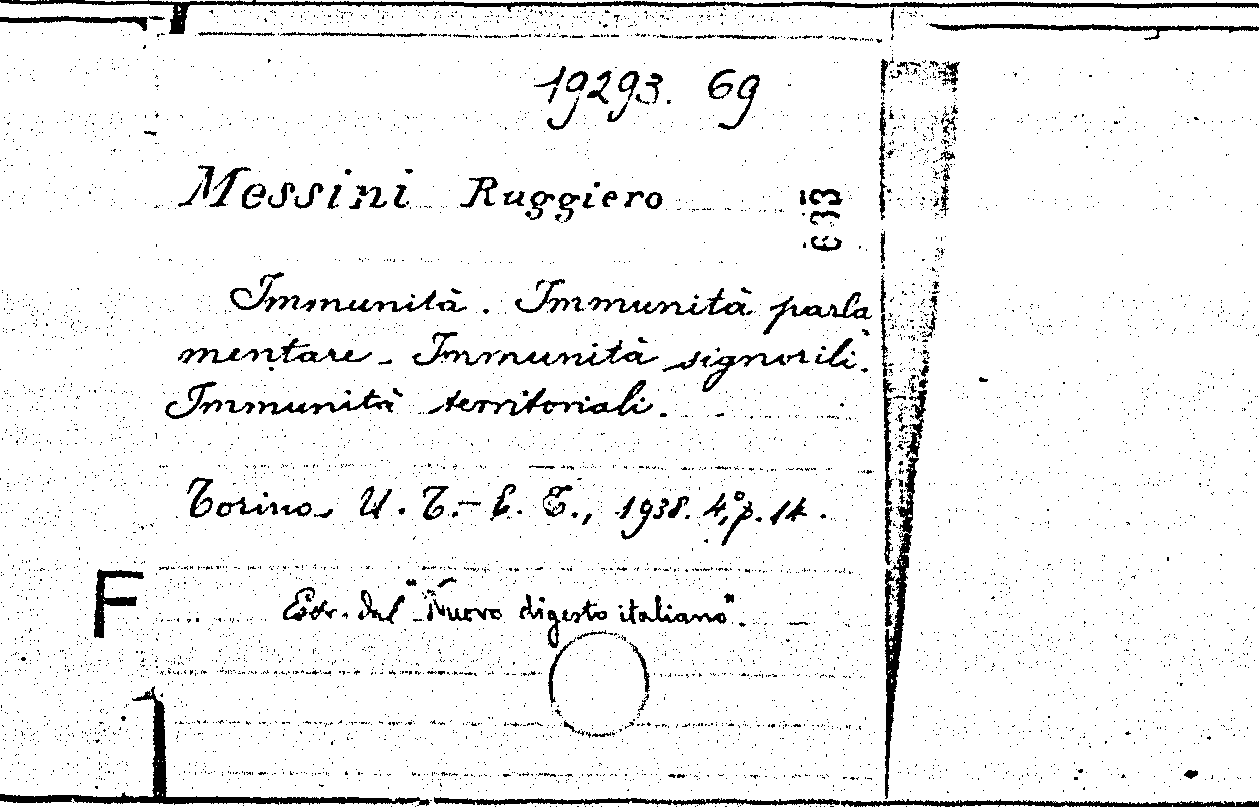 19293. 69
Messini Ruggiero
633
Immunità. Immunità parla
mentare - Immunità signorili.
Immunità territoriali.
Torino, U. T. - E. T., 1938. 4°, p. 14.
F
Estr. dal "Nuovo digesto italiano".